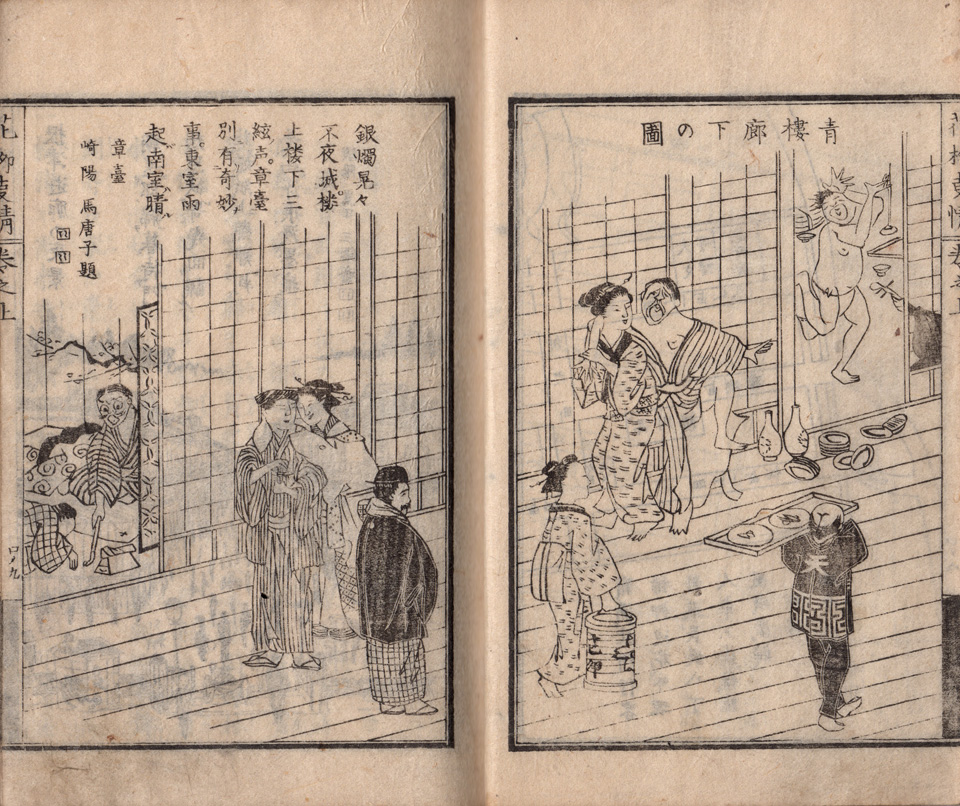 青樓廊下の圖
銀燭晃々
不夜城樓
上楼下三
絃声。章臺
別有奇妙
事。東室雨
起南室晴
章臺
崎陽 馬唐子題
花柳 情 巻之上
四十九
天